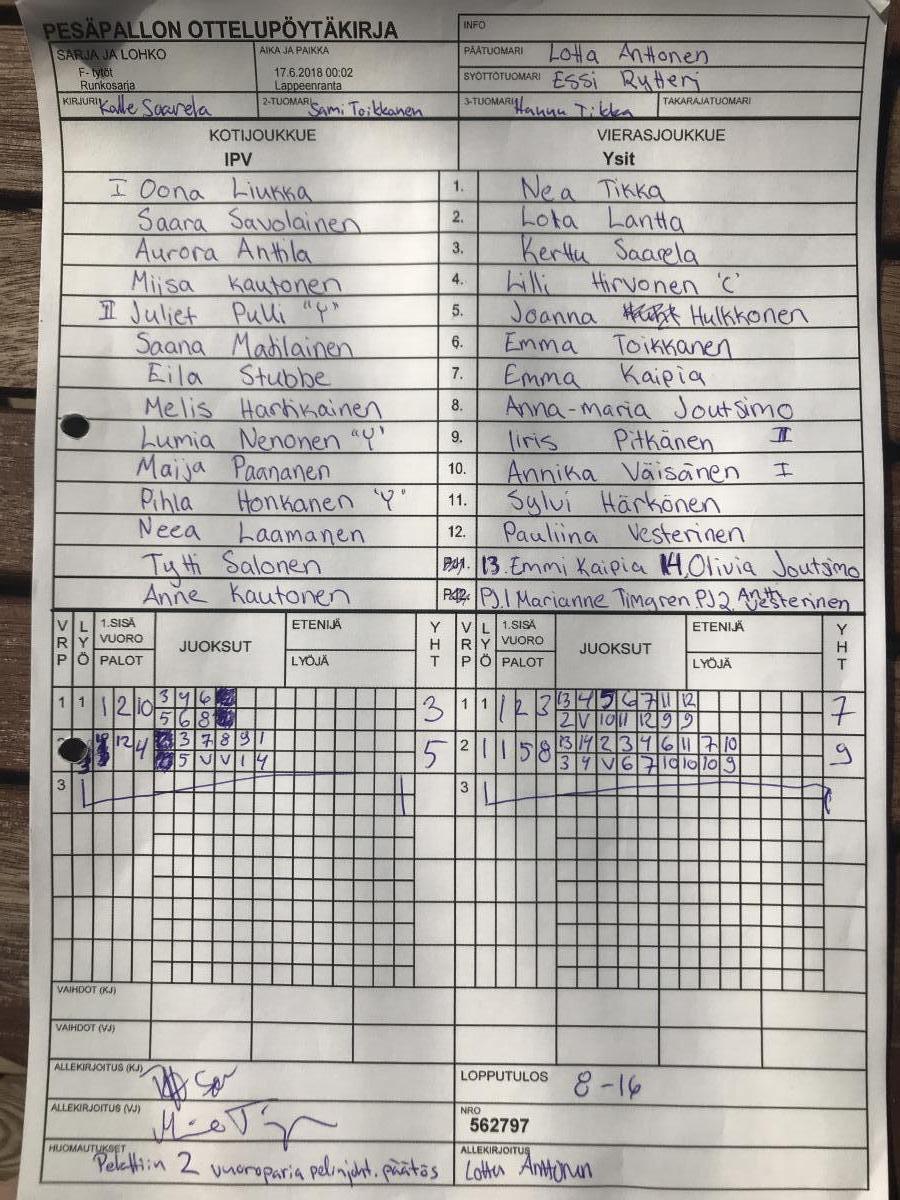 PESÄPALLON OTTELUPÖYTÄKIRJA
INFO
SARJA JA LOHKO
F- tytöt
Runkosarja
AIKA JA PAIKKA
17.6.2018 00:02
Lappeenranta
PÄÄTUOMARI Lotta Anttonen
SYÖTTÖTUOMARI Essi Rytteri
KIRJURI Kalle Saarela
2-TUOMARI Sami Toikkanen
3-TUOMARI Hannu Tikka
TAKARAJATUOMARI
KOTIJOUKKUE VIERASJOUKKUE
IPV Ysit
I Oona Liukka 1. Nea Tikka
Saara Savolainen 2. Lotta Lantta
Aurora Anttila 3. Kerttu Saarela
Miisa Kautonen 4. Lilli Hirvonen 'C'
II Juliet Pulli "Y" 5. Joanna Hulkkonen
Saana Matilainen 6. Emma Toikkanen
Eila Stubbe 7. Emma Kaipia
Melis Hartikainen 8. Anna-maria Joutsimo
Lumia Nenonen "Y" 9. Iiris Pitkänen II
Maija Paananen 10. Annika Väisänen I
Pihla Honkanen 'Y' 11. Sylvi Härkönen
Neea Laamanen 12. Pauliina Vesterinen
Tytti Salonen 13. Emmi Kaipia 14. Olivia Joutsimo
Anne Kautonen PJ.1 Marianne Timgren PJ2 Antti Vesterinen
VRP LYÖ 1.SISÄ VUORO PALOT JUOKSUT ETENIJÄ LYÖJÄ YHT VRP LYÖ 1.SISÄ VUORO PALOT JUOKSUT ETENIJÄ LYÖJÄ YHT
1 1 1 2 10 3 4 6 3 1 1 1 2 3 13 4 5 6 7 11 12 7
5 6 8 2 V 10 11 12 9 9
12 4 3 7 8 9 1 5 2 1 1 5 8 13 14 2 3 4 6 11 7 10 9
5 V V 1 4 3 4 V 6 7 10 10 10 9
3 3
VAIHDOT (KJ)
VAIHDOT (VJ)
ALLEKIRJOITUS (KJ)
LOPPUTULOS 8-16
ALLEKIRJOITUS (VJ)
NRO
562797
HUOMAUTUKSET
Pelattiin 2 vuoroparia pelinjoht. päätös
ALLEKIRJOITUS
Lotta Anttonen